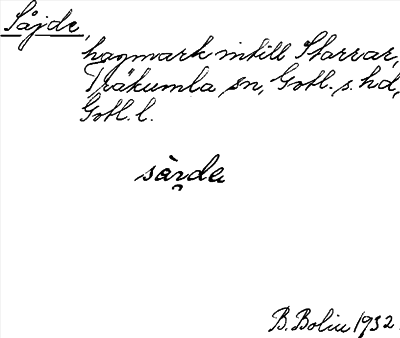 Såjde,
hagmark intill Starrar,
Träkumla sn, Gotl. s. hd,
Gotl. l.
sàrde
B. Bolin 1932.